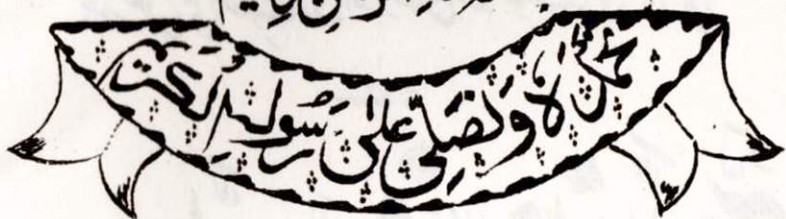 نحمدہ و نصلی علیٰ رسولہ الکریم